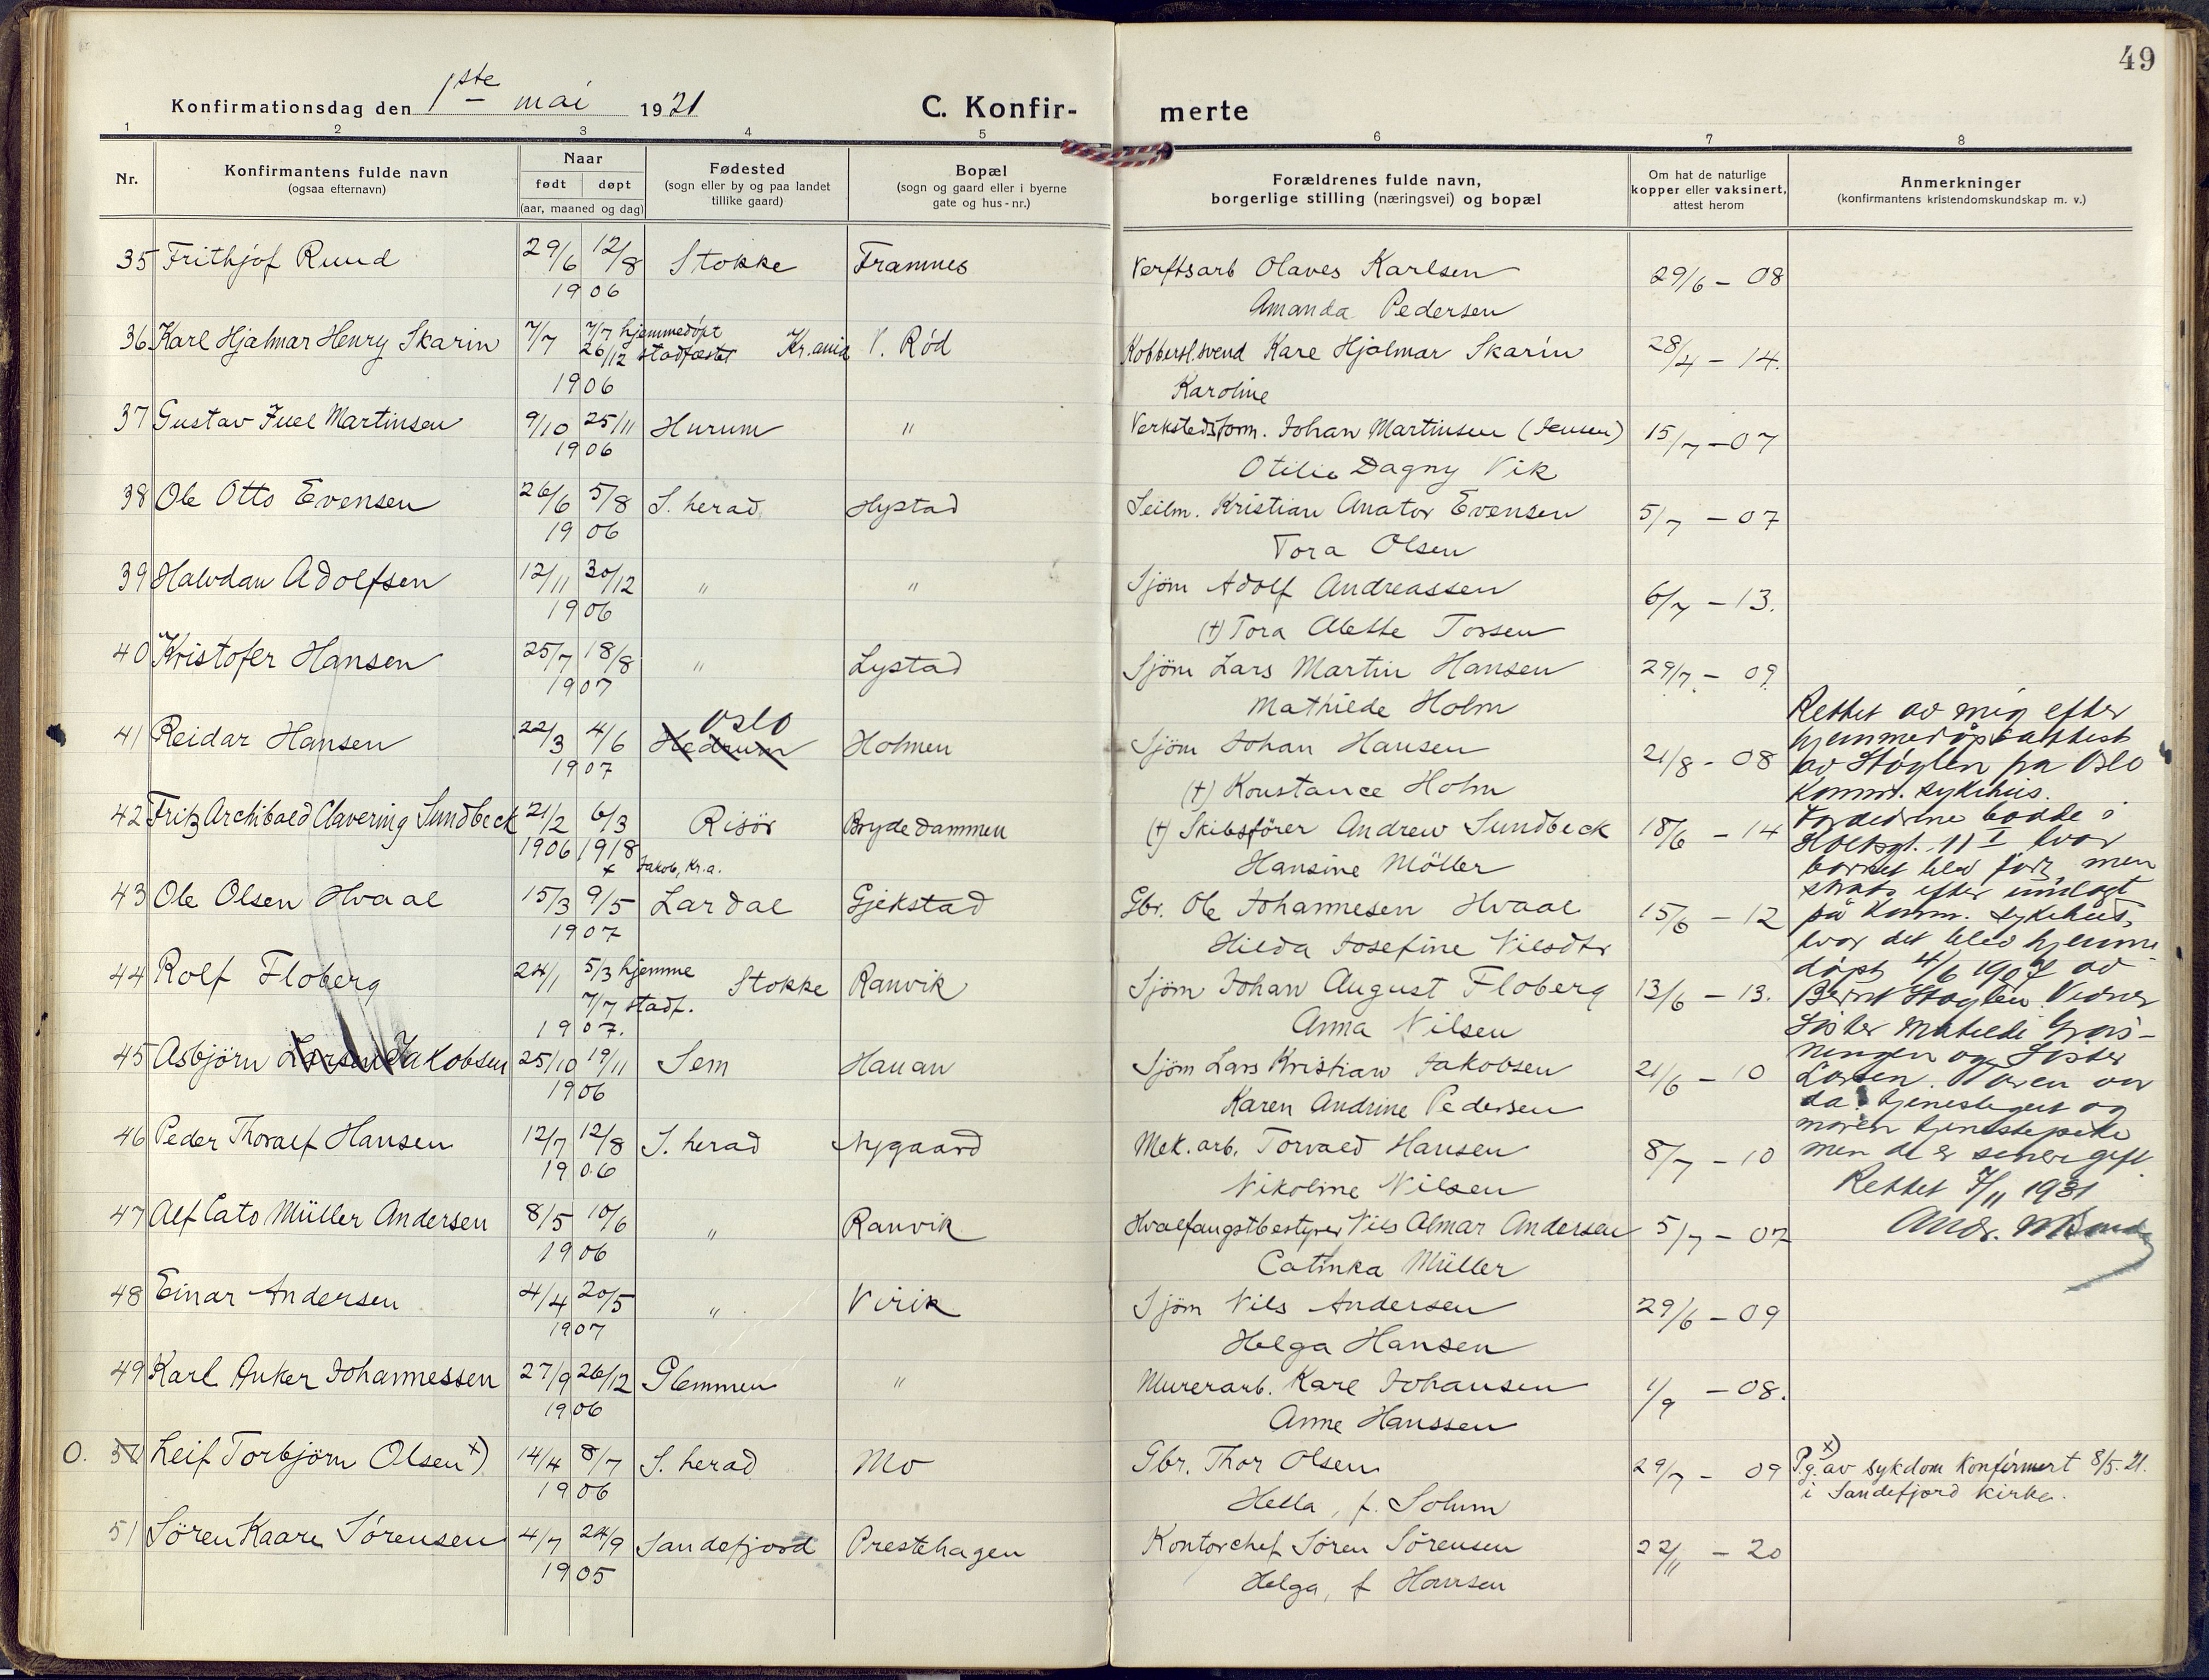 49
Konfirmationsdag den 1ste mai 1921
C. Konfir- merte
1 2 3 4 5 6 7 8
Nr.
Konfirmantens fulde navn
(ogsaa efternavn)
Naar
født døpt
(aar, maaned og dag)
Fødested
(sogn eller by og paa landet
tillike gaard)
Bopæl
(sogn og gaard eller i byerne
gate og hus-nr.)
Forældrenes fulde navn,
borgerlige stilling (næringsvei) og bopæl
Om hat de naturlige
kopper eller vaksinert,
attest herom
Anmerkninger
(konfirmantens kristendomskundskap m. v.)
35 Frithjof Ruud 29/6 12/8 Stokke Framnes Verftsarb Olaves Karlsen 29/6 - 08
1906 Amanda Pedersen
36 Karl Hjalmar Henry Skarin 7/7 7/7 hjemmedøpt
26/12 stadfæstet Kr.ania V. Rød Kobbersl.svend Karl Hjalmar Skarin 28/4 - 14.
1906 Karoline
37 Gustav Juel Martinsen 9/10 25/11 Hurum " Verkstedsform. Johan Martinsen (Jensen) 15/7 - 07
1906 Otilie Dagny Vik
38 Ole Otto Evensen 26/6 5/8 S. herad Hystad Seilm. Kristian Anator Evensen 5/7 - 07
1906 Tora Olsen
39 Halvdan Adolfsen 12/11 30/12 " " Sjøm Adolf Andreassen 6/7 - 13.
1906 (+) Tora Alette Torsen
40 Kristofer Hansen 25/7 18/8 " Lystad Sjöm Lars Martin Hansen 29/7 - 09
1907 Mathilde Holm
41 Reidar Hansen 22/3 4/6 Hedrum Oslo Holmen Sjöm Johan Hansen 21/8 - 08
1907 (+) Konstance Holm
42 Fritz Archibald Clavering Sundbeck 21/2 6/3 Risör Bryde Dammen (+) Skibsförer Andrew Sundbeck 18/6 - 14
1906 1918 Hansine Möller
+ Jakob, Kr.a.
43 Ole Olsen Hvaal 15/3 9/5 Lardal Gjekstad Gbr. Ole Johannesen Hvaal 15/6 - 12
1907 Hilda Josefine Nilsdtr
44 Rolf Floberg 24/1 5/3 hjemme
7/7 stadf. Stokke Ranvik Sjöm Johan August Floberg 13/6 - 13.
1907. Anna Nilsen
45 Asbjörn Larsen Jakobsen 25/10 19/11 Sem Hauan Sjöm Lars Kristian Jakobsen 21/6 - 10
1906 Karen Andrine Pedersen
46 Peder Thoralf Hansen 12/7 12/8 S. herad Nygaard Mek. arb. Torvald Hansen 8/7 - 10
1906 Nikoline Nilsen
47 Alf Cato Müller Andersen 8/5 10/6 " Ranvik Hvalfangstbestyrer Nils Almar Andersen 5/7 - 07
1906 Catinka Müller
48 Einar Andersen 4/4 20/5 " Virik Sjöm Nils Andersen 29/6 - 09
1907 Helga Hansen
49 Karl Anker Johannessen 27/9 26/12 Glemmen " Murerarb. Karl Johansen 1/9 - 08.
1906 Anne Hanssen
O. 50 Leif Torbjörn Olsen x) 14/4 8/7 S. herad Mo Gbr. Thor Olsen 29/7 - 09
1906 Hella, f. Solum
51 Sören Kaare Sörensen 4/7 24/9 Sandefjord Prestehagen Kontorchef Sören Sörensen 22/11 - 20
1905 Helga, f Hansen
Rettet av mig efter
hjemmedåpsattest
av Støylen fra Oslo
komm. sykehus.
Forældrene bodde i
Holtsgt. 11 I hvor
barnet blev født, men
straks efter innlagt
på Komm. sykehus,
hvor det blev hjemme-
døpt 4/6 1907 av
Bernt Støylen. Vidner
Søster Mathilde
og Søster
Larsen. Faren var
da tjenestegut og
moren tjenestepike
men de er senere gift
Rettet 7/11 1931
x)
P.g. av sykdom konfirmert 8/5. 21.
i Sandefjord kirke.